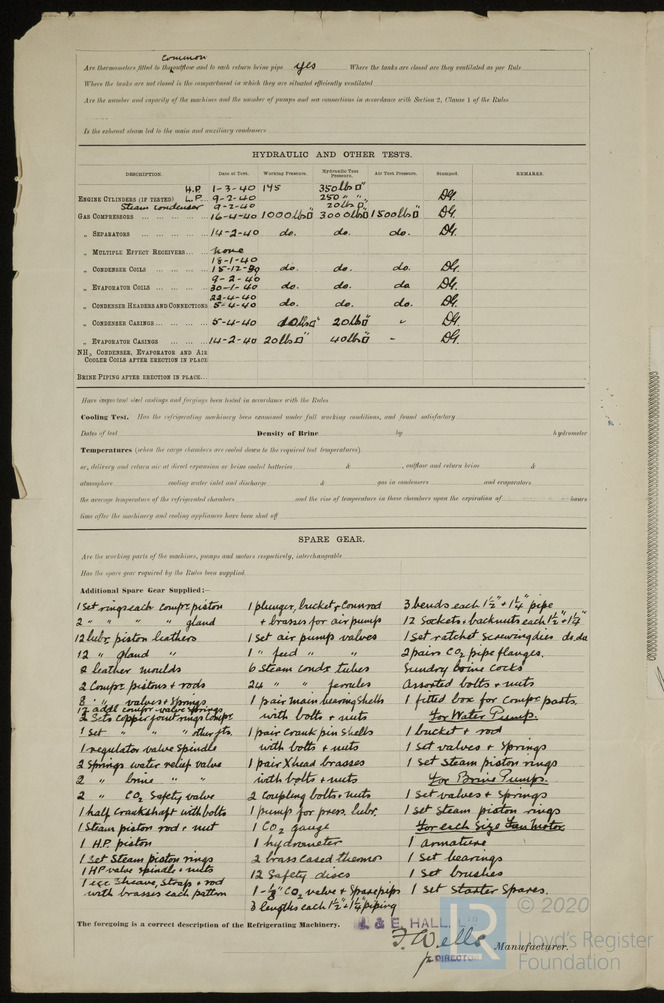 common
Are thermometers fitted to the outflow and to each return brine pipe yes Where the tanks are closed are they ventilated as per Rule
Where the tanks are not closed is the compartment in which they are situated efficiently ventilated
Are the number and capacity of the machines and the number of pumps and sea connections in accordance with Section 2, Clause 1 of the Rules
Is the exhaust steam led to the main and auxiliary condensers
HYDRAULIC AND OTHER TESTS.
DESCRIPTION. Date of Test. Working Pressure. Hydraulic Test Pressure. Air Test Pressure. Stamped. REMARKS.
H.P. 1-3-40 145 350 lbs □"
ENGINE CYLINDERS (IF TESTED) L.P. 9-2-40 250 " " DG.
Steam condenser 9-2-40 20 lbs □"
GAS COMPRESSORS 16-4-40 1000 lbs □" 3000 lbs □" 1500 lbs □" DG.
" SEPARATORS 14-2-40 do. do. do. DG.
" MULTIPLE EFFECT RECEIVERS none
18-1-40
" CONDENSER COILS 18-12-39 do. do. do. DG.
9-2-40
" EVAPORATOR COILS 30-1-40 do. do. do DG.
22-4-40
" CONDENSER HEADERS AND CONNECTIONS 5-4-40 do. do. do. DG.
" CONDENSER CASINGS 5-4-40 10 lbs □" 20 lbs □" - DG.
" EVAPORATOR CASINGS 14-2-40 20 lbs □" 40 lbs □" - DG.
NH₃ CONDENSER, EVAPORATOR AND AIR
COOLER COILS AFTER ERECTION IN PLACE
BRINE PIPING AFTER ERECTION IN PLACE
Have important steel castings and forgings been tested in accordance with the Rules
Cooling Test. Has the refrigerating machinery been examined under full working conditions, and found satisfactory
Dates of test Density of Brine by hydrometer
Temperatures (when the cargo chambers are cooled down to the required test temperatures)
or, delivery and return air at direct expansion or brine cooled batteries & , outflow and return brine &
atmosphere cooling water inlet and discharge & gas in condensers and evaporators
the average temperature of the refrigerated chambers and the rise of temperature in these chambers upon the expiration of hours
time after the machinery and cooling appliances have been shut off
SPARE GEAR.
Are the working parts of the machines, pumps and motors respectively, interchangeable
Has the spare gear required by the Rules been supplied
Additional Spare Gear Supplied:—
1 Set rings each compr. piston
2 " " " " gland
12 lubr. piston leathers
12 " gland "
2 leather moulds
2 Compr. pistons & rods
8 " valves & springs
12 addl. compr. valve springs
2 Sets copper joint rings Compr.
1 Set " " " other jts.
1 regulator valve spindle
2 Springs water relief valve
2 " brine " "
2 " CO₂ Safety valve
1 half Crankshaft with bolts
1 Steam piston rod & nut
1 H.P. piston
1 Set Steam piston rings
1 HP valve spindle & nuts
1 ecc. sheave, straps & rod
with brasses each pattern
1 plunger, bucket & Connrod
& brasses for air pump
1 Set air pump valves
1 " feed " "
6 Steam condr. tubes
24 " " ferrules
1 pair main bearing shells
with bolts & nuts
1 pair Crank pin shells
with bolts & nuts
1 pair Xhead brasses
with bolts & nuts
2 Coupling bolts & nuts
1 pump for press. lubr.
1 CO₂ gauge
1 hydrometer
2 brass cased thermos
12 Safety discs
CO₂ valve & spare pips
3 lengths each 1½" & 1¼" piping
3 bends each 1½" & 1¼" pipe
12 Sockets & backnuts each 1½" & 1¼"
1 Set ratchet screwing dies do. do
2 pairs CO₂ pipe flanges.
Sundry brine cocks
Assorted bolts & nuts
1 fitted box for Compr. parts.
For Water Pump.
1 bucket & rod
1 Set valves & springs
1 Set Steam piston rings
For Brine Pumps.
1 Set valves & springs
1 Set Steam piston rings
For each Size Fan Motor.
1 armature
1 Set bearings
1 Set brushes
1 Set Starter Spares.
The foregoing is a correct description of the Refrigerating Machinery.
J. & E. HALL, LTD
F. Wells
p DIRECTOR
Manufacturer.
© 2020
LR
Lloyd's Register
Foundation